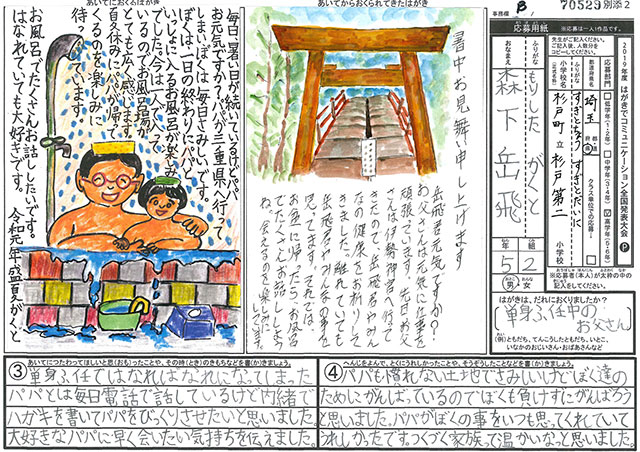 あいてにおくるはがき
毎日、暑い日が続いているけどパパ
お元気ですか？パパが三重県へ行って
しまい、ぼくは毎日さみしいです。
ぼくは一日の終わりにパパと
いっしょに入るお風呂が楽しみ
でした。今は一人で入って
いるのでお風呂場が
とても広く感じます。
夏休みにパパが帰って
くるのを楽しみに
待っています。
お風呂でたくさんお話ししたいです。
はなれていても大好きです。
令和元年盛夏 がくと
あいてからおくられてきたはがき
暑中お見舞い申し上げます
岳飛君元気ですか？
お父さんは元気に仕事を
頑張っています。先日お父
さんは伊勢神宮へ行って
きたので、岳飛君やみん
なの健康をお祈りして
きました。離れていても
岳飛君とみんなの事を
思ってます。それでは
お盆に帰ったらお風呂
でたくさんお話ししよう
ね。会えるのを楽しみに
事務欄 B
70529 別添2
応募用紙
※応募は一人1作品です。
ふりがな もりした がくと
おなまえ 森下岳飛
5年 2組
男・女
先生がご記入ください。
ご記入後、人数分を
コピーしてください。
都道府県名 埼玉
都 道 府 県
ふりがな すぎとちょうりつ すぎとだいに
小学校名
(正式名称)
杉戸町立 杉戸第二 小学校
2019年度 はがきでコミュニケーション全国発表大会 P
応募部門
低学年(1・2年)
中学年(3・4年)
高学年(5・6年)
クラス単位での応募
※応募者(本人)が太枠の中の
記入をしてください。
はがきは、だれにおくりましたか？
単身ふ任中の
お父さん
(例)ともだち、てんこうしたともだち、いとこ、
いなかのおじいさん・おばあさんなど
③ あいてにつたわってほしいと思(おも)ったことや、その時(とき)のきもちなどを書(か)きましょう。
単身ふ任ではなればなれになってしまった
パパとは毎日電話で話しているけど内緒で
ハガキを書いてパパをびっくりさせたいと思いました。
大好きなパパに早く会いたい気持ちを伝えました。
④ へんじをよんで、とくにうれしかったことや、そうぞうしたことなどを書(か)きましょう。
パパも慣れない土地でさみしいけどぼく達の
ためにがんばっているのでぼくも負けずにがんばろう
と思いました。パパがぼくの事をいつも思ってくれていて
うれしかったです。つくづく家族って温かいなっと思いました。